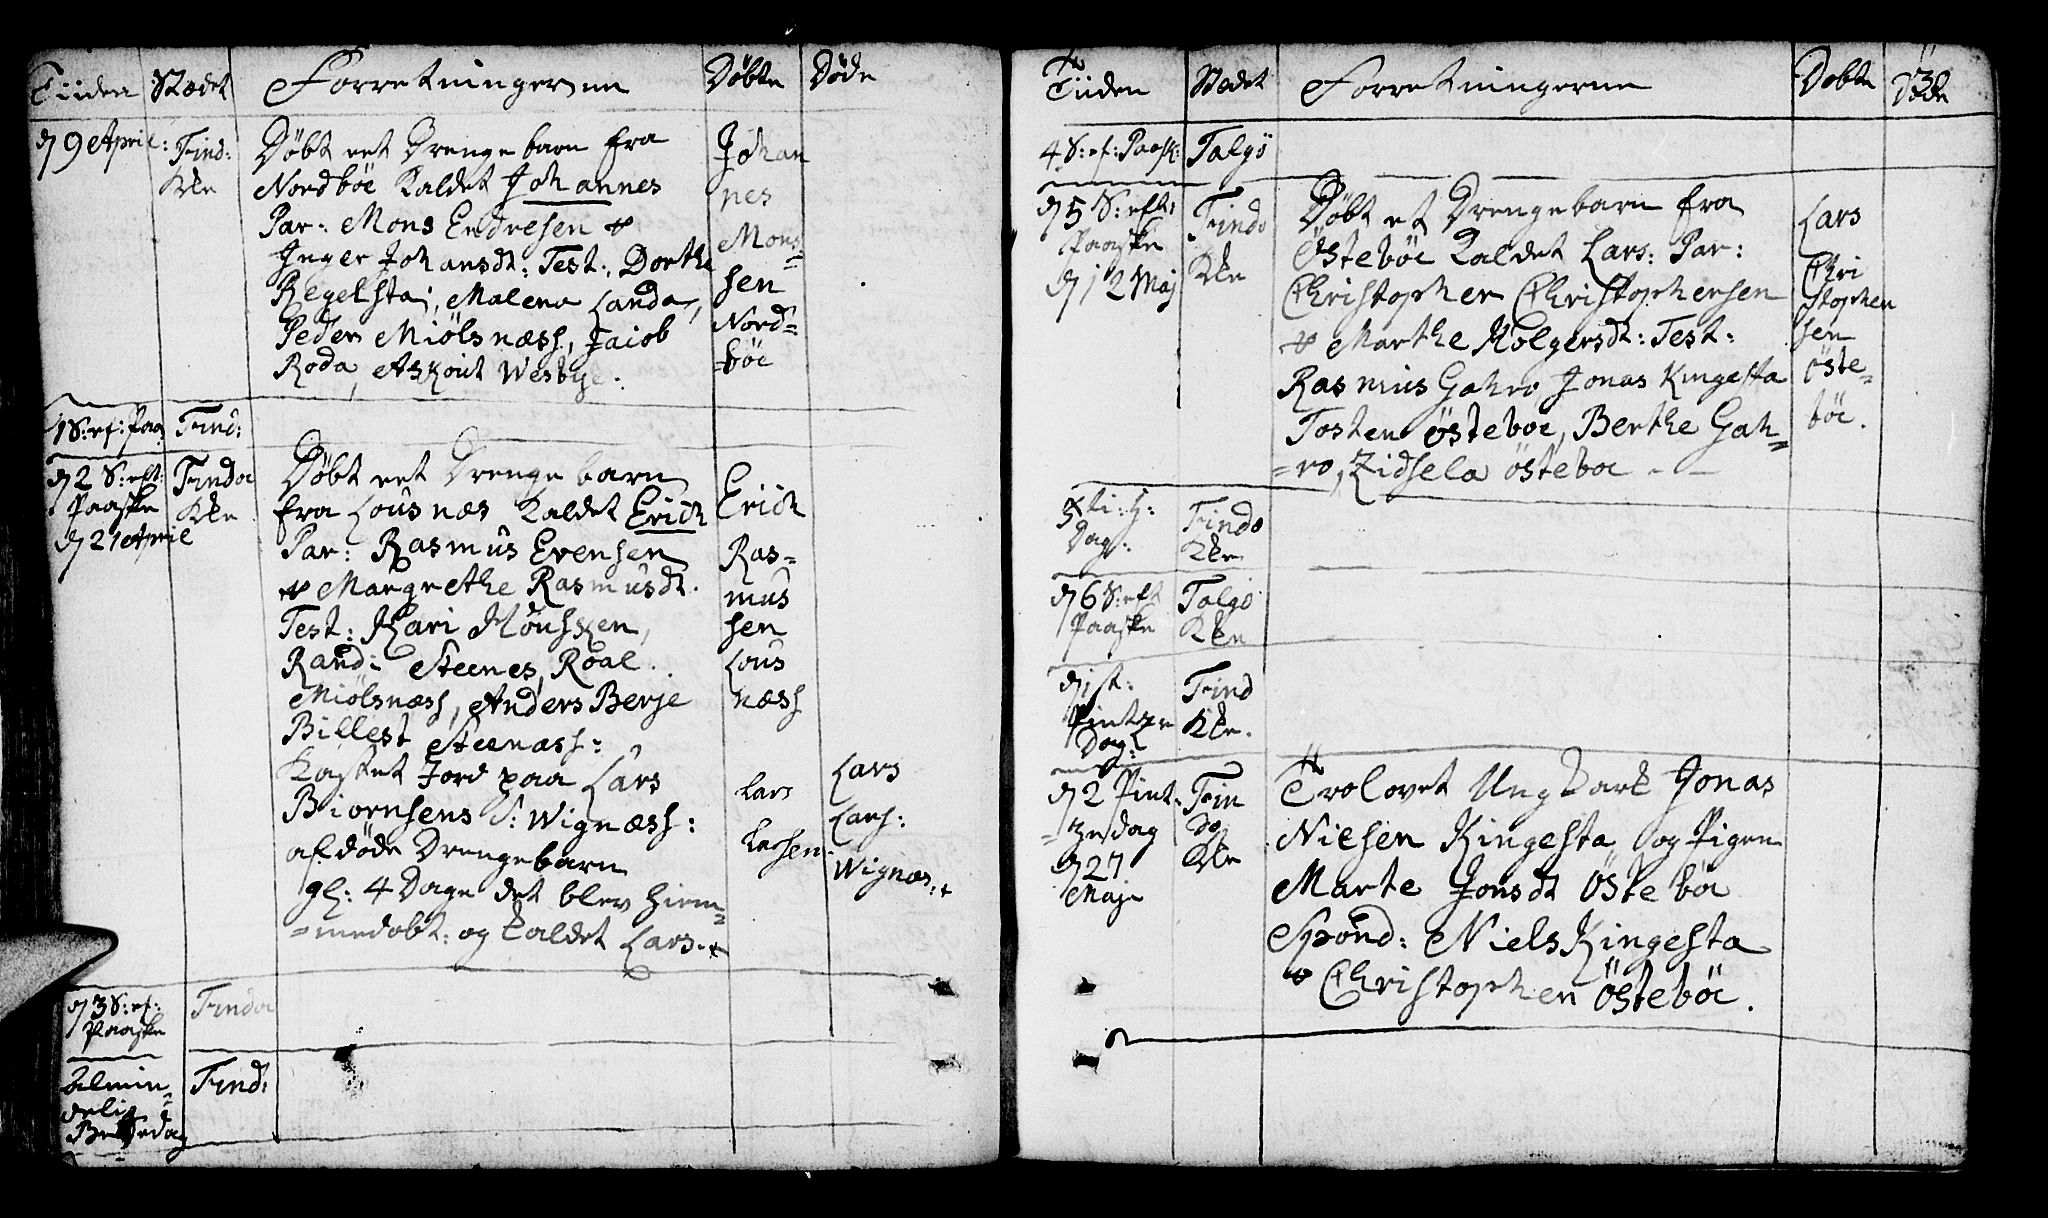 Tiiden Stædet Forretningerne Døbte Døde
d 9 April: Find: Kke
Døbt eet Drenge barn fra
Nordbøe kaldet Johannes
Par: Mons Endresen &
Inger Johansdt: Test: Dorthe
Regelsta, Malena Landa,
Peder Miølsnæss, Jacob
Roda, Askout Westbye:
Johan
nes
Mons=
sen
Nord=
=bøe
1 S: ef: Paa Find:
d 2 S: eft:
Paaske
d 21 April
Findøe
Kke
Døbt eet Drenge barn
fra Lousnæs kaldet Erich
Par: Rasmus Evensen
& Margrethe Rasmusdt.
Test: Kari Housken,
Rand: Steenes, Roal
Miølsnæss, Anders Berje
Billest Steenæss:
Erich
Ras=
mus
sen
Lous
næss
Kastet Jord paa Lars
Biørnsens S: Wignæss:
afdøde Drengebarn
gl: 4 Dage det blev hiem=
=medøbt: og kaldet Lars.
Lars
Larsen
Lars
Lars:
Wignæs
d 3 S: ef:
Paaske
Findøe
Almin=
delig
Bededag
Find:
Tiiden Stædet Forretningerne Døbte Døde
4 S: ef: Paask: Talgø
d 5 S: eft:
Paaske
d 12 Maj
Findø
Kke
Døbt et Drengebarn fra
Østebøe kaldet Lars: Par:
Christopher Christophersen
& Marthe Holgersdt: Test:
Rasmus Gahro Jonas Kingesta
Tosten Østebøe, Berthe Gah=
=ro, Zidsela Østeboe - -
Lars
Chri
stopher
sen
Øste=
bøe.
Xsti: H:
Dag:
Findø
Kke
d 6 S: eft
Paaske
Talgø
Kke
d 1st:
Pintze
Dag:
Find
Kke.
d 2 Pint:
=zedag
d 27
Maje
Fin
dø
Kke
Trolovet Ungkarl Jonas
Nielsen Kingesta og Pigen
Marte Jonsdt Østebøe
Spond: Niels Kingesta
& Christopher Østebøe.